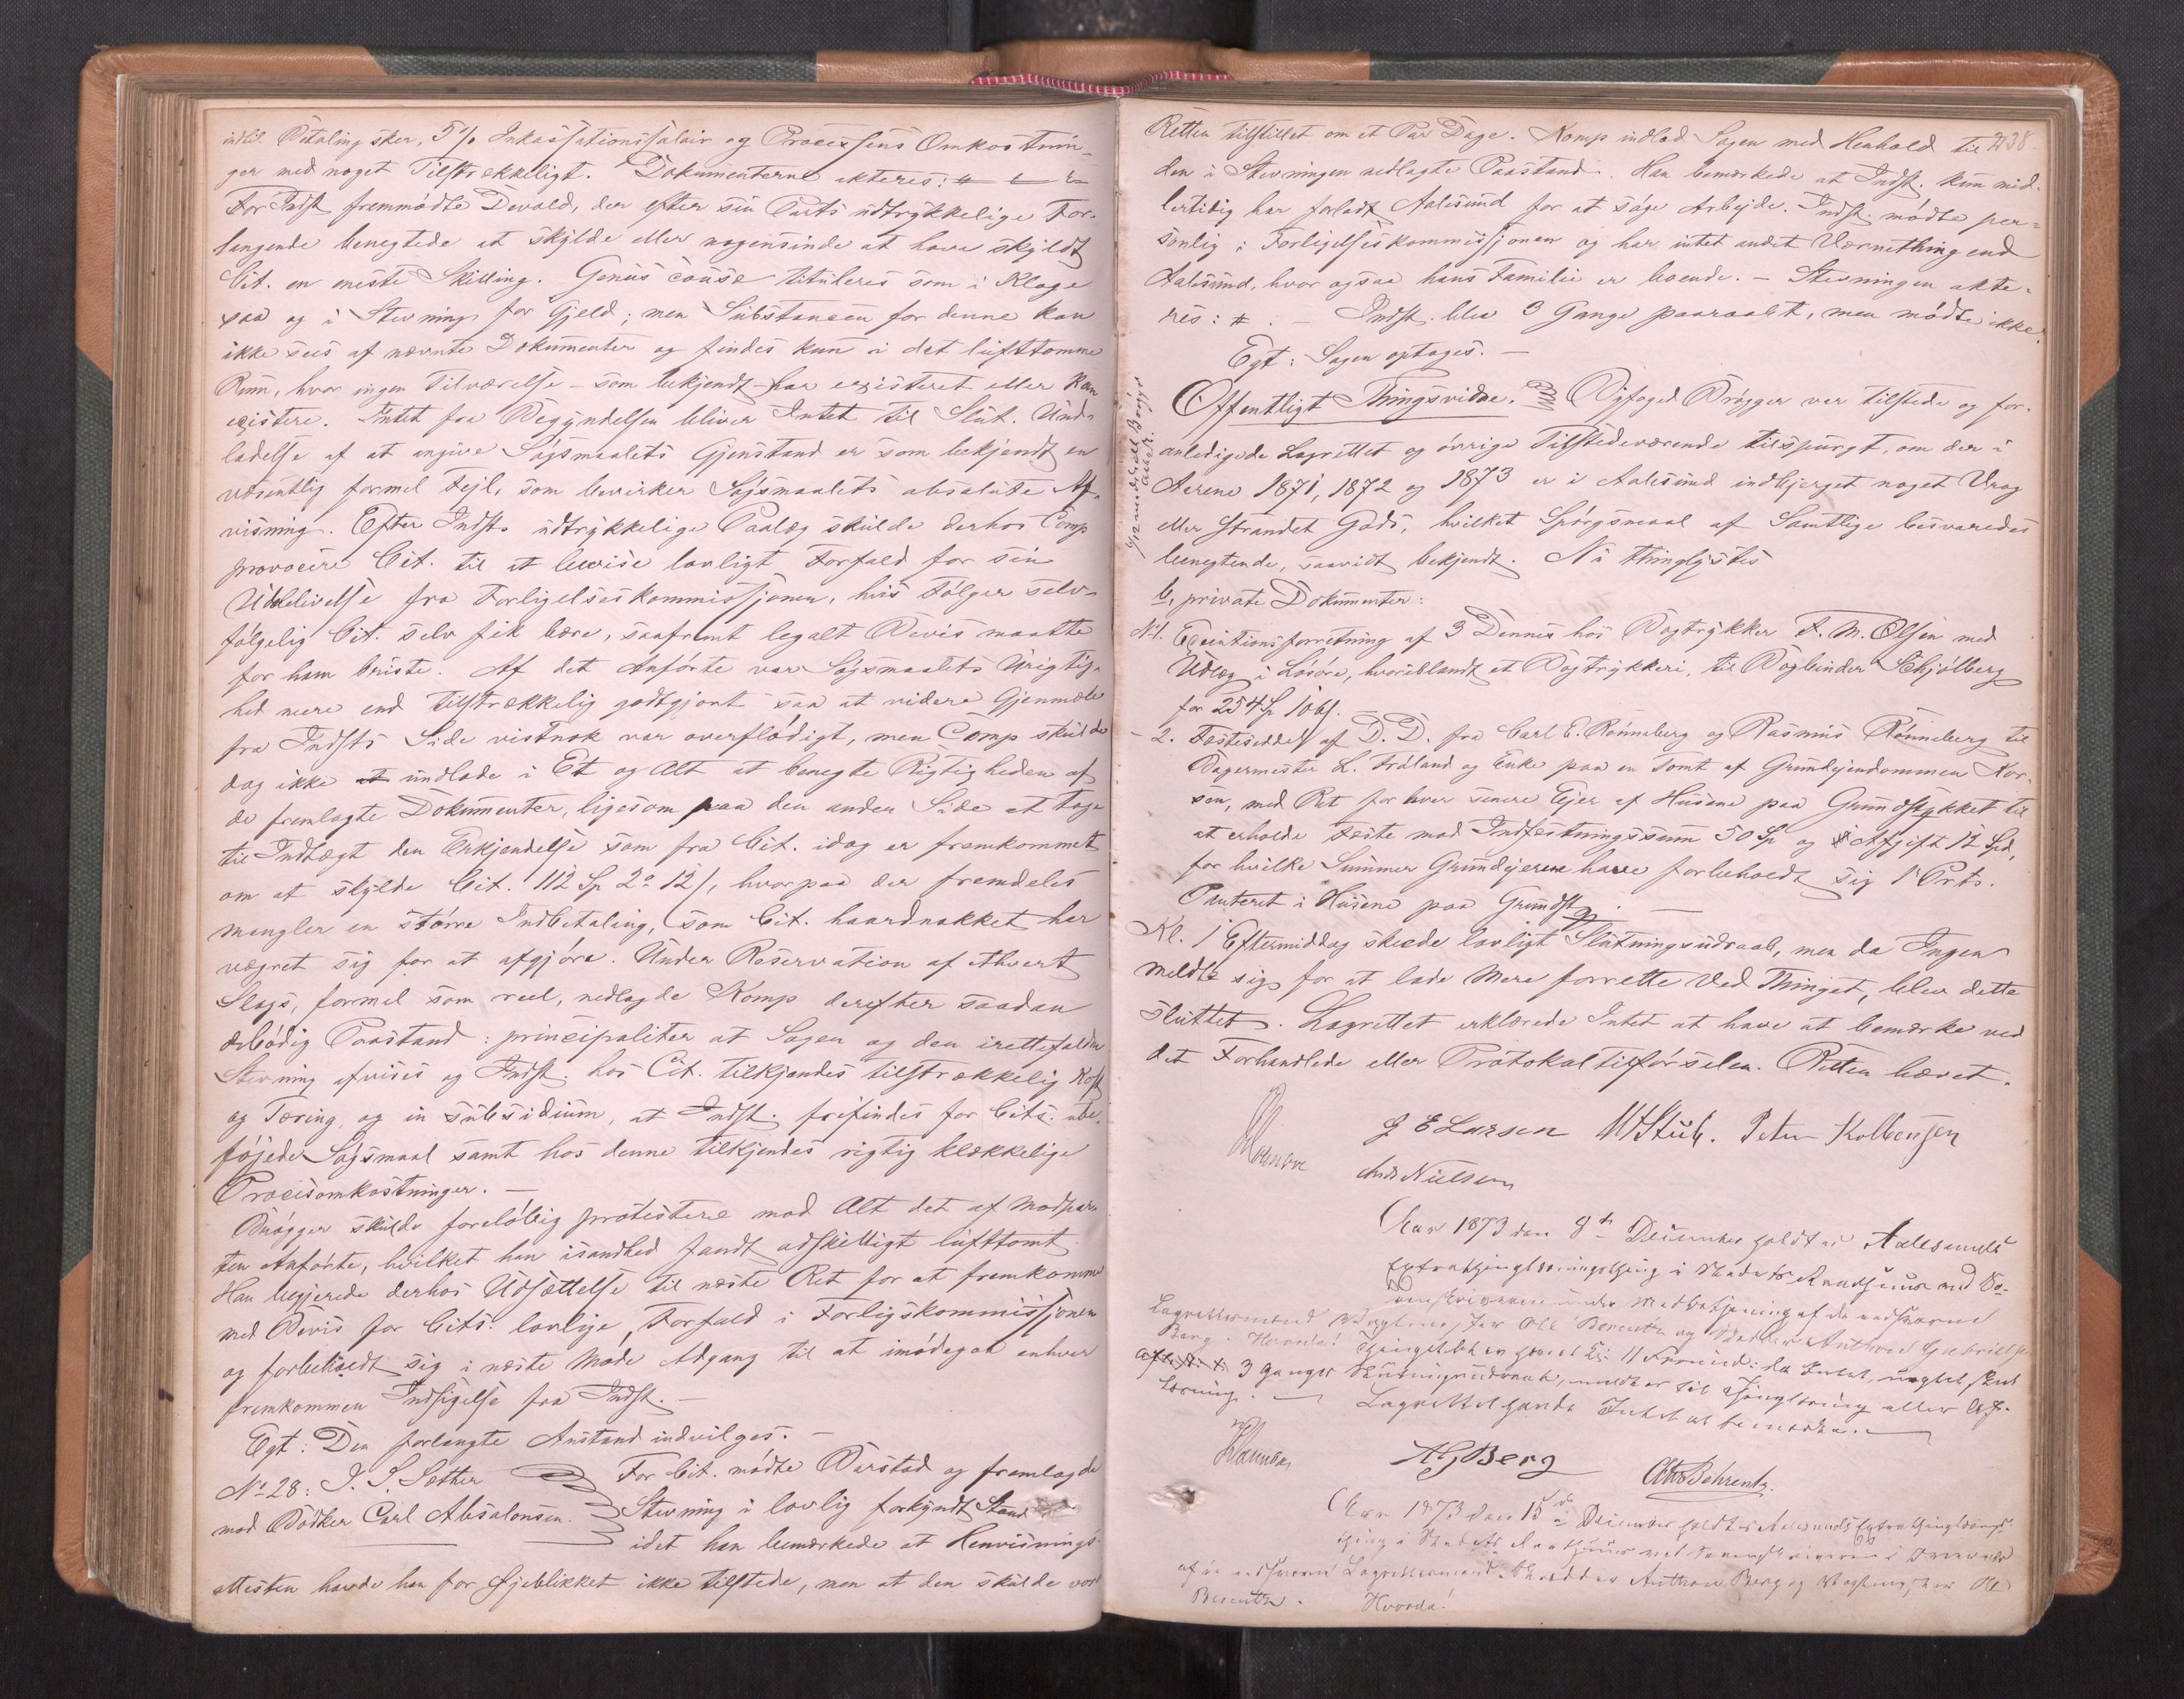 indtil Betaling sker, 5 % Inkassationssalair og Processens Omkostnin-
ger med noget Tilstrækkeligt. Dokumenterne akteres:
For Indst. fremmødte Devold, der efter sin Parts udtrykkelige For-
langende benegtede at skylde eller nogensinde at have skyldt
Cit. en eneste Skilling. Genus causæ tituleres som i Klage
saa og i Stevning for Gjeld; men Substancen for denne kan
ikke sees af nævnte Dokumenter og findes kun i det lufttomme
Rum, hvor ingen Tilværelse – som bekjendt – har existeret eller kan
existere. Intet fra Begyndelsen bliver Intet til Slut. Und-
ladelse af at angive Søgsmaalets Gjenstand er som bekjendt en
væsentlig formel Fejl, som bevirker Søgsmaalets absolute Af-
visning. Efter Indsts. udtrykkelige Paalæg skulde derhos Comp
provocere Cit. til at bevise lovligt Forfald for sin
Udeblivelse fra Forligelseskommissjonen, hvis Følger selv-
følgelig Cit. selv fik bære, saafremt legalt Bevis maatte
for ham briste. Af det Anførte var Søgsmaalets Urigtig-
hed mere end tilstrækkelig godtgjort saa at videre Gjenmæle
fra Indsts Side vistnok var overflødigt, men Comp skulde
dog ikke undlade i Et og Alt at benegte Rigtigheden af
de fremlagte Dokumenter, ligesom paa den anden Side at tage
til Indtægt den Erkjendelse som fra Cit. idag er fremkommet
om at skylde Cit. 112 Sp 2 o 12 s, hvorpaa der fremdeles
mangler en større Indbetaling, som Cit. haardnakket har
vægret sig for at afgjøre. Under Reservation af ethvert
Slags, formel som reel, nedlagde Komp derefter saadan
ærbødig Paastand: principaliter at Sagen og den irettefaldne
Stevning afvises og Indst. hos Cit. tilkjendes tilstrækkelig Kost
og Tæring, og in subsidium, at Indst. frifindes for Cits. ube-
føjede Søgsmaal samt hos denne tilkjendes rigtig klækkelige
Procesomkostninger. –
Brøgger skulde foreløbig protestere mod Alt det af Modpar-
ten Anførte, hvilket han isandhed fandt adskilligt lufttomt.
Han begjerede derhos Udsættelse til næste Ret for at fremkomme
med Bevis for Cits. lovlige Forfald i Forligskommissjonen
og forbeholdt sig i næste Møde Adgang til at imødegaa enhver
fremkommen Indsigelse fra Indst. –
Egt: Den forlangte Anstand indvilges. –
No 28: J. S. Sether
mod Bødker Carl Absalonsen.
For Cit. mødte Barstad og fremlagde
Stevning i lovlig forkyndt Stand
idet han bemærkede at Henvisnings-
attesten havde han for Øjeblikket ikke tilstede, men at den skulde vor
238.
Retten tilstillet om et Par Dage. Komp indlod Sagen med Henhold til
den i Stevningen nedlagte Paastand. Han bemærkede at Indst. kun mid-
lertidig har forladt Aalesund for at søge Arbejde. Indst. mødte per-
sonlig i Forligelseskommissjonen og har intet andet Værnething end
Aalesund, hvor ogsaa hans Familie er boende. – Stevningen akte-
res: #. – Indst. blev 3 Gange paaraabt, men mødte ikke.
Egt: Sagen optages. –
Offentligt Thingsvidne. Byfoged Brøgger var tilstede og for-
anledigede Lagrettet og øvrige Tilstedeværende tilspurgt, om der i
Aarene 1871, 1872 og 1873 er i Aalesund indbjerget noget Vrag
eller strandet Gods, hvilket Spørgsmaal af Samtlige besvaredes
benegtende, saavidt bekjendt. Nu thinglystes
b, private Dokumenter:
No 1. Executionsforretning af 3 Dennes hos Bogtrykker F. M. Olsen med
Udlæg i Løsøre, hvoriblandt et Bogtrykkeri, til Bogbinder Schjølberg
for 254 Sp 106 s.
- 2. Festeseddel af D. D. fra Carl E. Rønneberg og Rasmus Rønneberg til
Bagermester L. Frøland og Enke paa en Tomt af Grundejendommen Kor-
sen, med Ret for hver senere Ejer af Husene paa Grundstykket til
at erholde Feste mod Indfestningssum 50 Sp og Afgift 12 Spd,
for hvilke Summer Grundejerne have forbeholdt sig 1 Prts.
Panteret i Husene paa Grundst. –
Kl. 1 Eftermiddag skede lovligt Slutningsudraab, men da Ingen
meldte sig for at lade Mere forrette ved Thinget, blev dette
sluttet. Lagrettet erklærede Intet at have at bemærke ved
det Forhandlede eller Protokoltilførselen. Retten hævet.
J E Larsen M Stub. Peter Kolbensen
Ands Nielsen
Aar 1873 den 8de December holdtes Aalesunds
Extrathinglæsningsthing i Stadets Raadhuus ved So-
renskriveren under Medbetjening af de edsvorne
Berg. Hvorda! Thinget blev hævet Kl. 11 Formid: da Intet, uagtet skeet
3 Ganger Slutningsudraab, meldtes til Thinglæsning eller Af-
læsning. – Lagrettet havde Intet at bemærke. –
A G Berg
Otto Behrentz.
Aar 1873 den 15de December holdtes Aalesunds Extrathinglæsnings-
thing i Stadets Raadhuus ved Sorenskriveren i Overvær
af de edsvorne Lagrettesmænd Anthon Berg og
Hvorda!